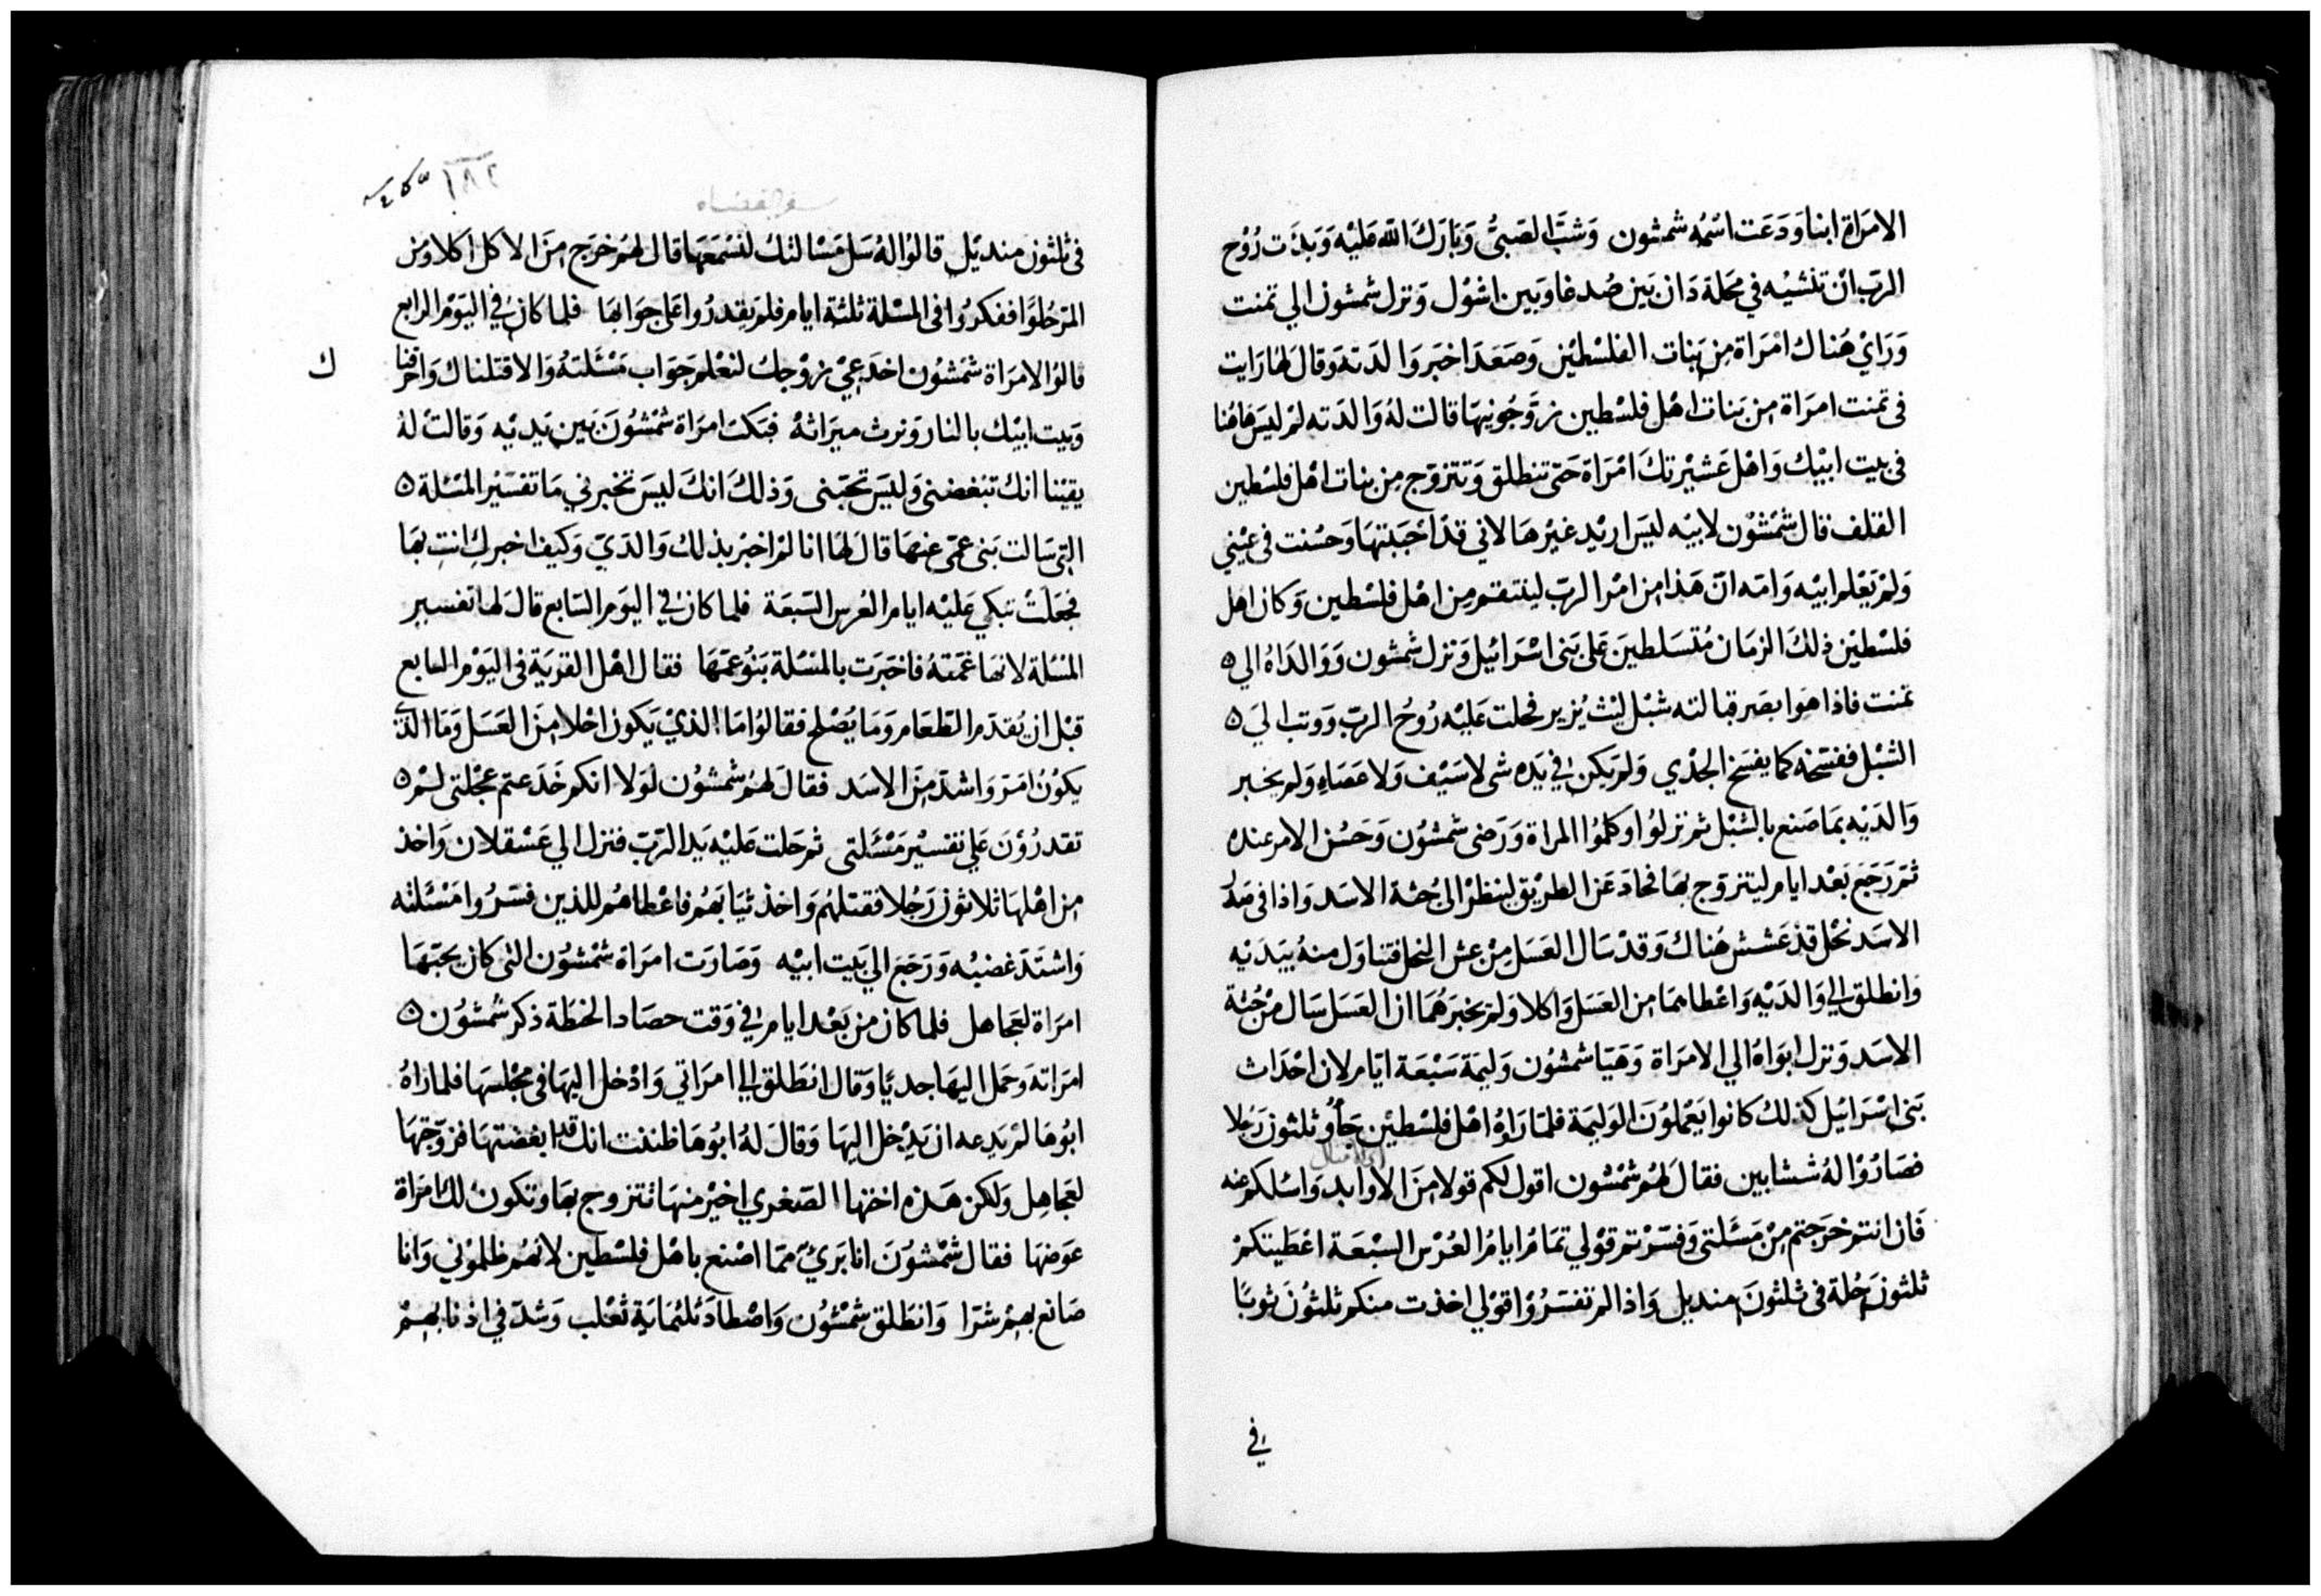 الامرَاة ابنا وَدَعَت اسْمُه شمشون وَشبَّ الصَبىُّ وَبَارَكَ الله عَليْه وَبدَت رُوْح
الربّ انْ تمشيْه في محَلة دَان بَين صُدعَا وَبين اشوْل وَنزل شمشون الي تمنت
وَرَايْ هُناك امْرَاة مِن بَنات الفلسْطيْن وَصَعَد اخبَر وَالدَته وَقال لهَا رَايت
في تمنت امرَاة مِن بَنات اهْل فلسْطين زوّجُونيهَا قالت لهُ وَالدَته لمْ ليسَ هَاهُنا
في بيت ابيْك وَاهْل عَشيْرتكَ امْرَاة حَتى تنطلق وَتتزوّج مِن بنات اهْل فلسْطين
القلف فقال شمْشوْن لابيْه ليسَ اريْد غيْرهَا لاني قدْ احْبَبتهَا وَحسُنت في عَيْني
وَلمْ يَعْلم ابيْه وَامه انّ هَذا مِن امْر الربّ لينتقم مِن اهْل فلسْطين وَكان اهل
فلسْطيْن ذلكَ الزمَان مُتسَلطينَ عَلى بَني اسْرَائيْل وَنزل شمْشون وَوَالدَاهُ الي ه
تمنت فاذا هوَ ابصَر قبالته شبْل ليْث يُزير فحلت عَليْه رُوحُ الربّ وَوَثب الي ه
الشبْل ففسَخه كما يفسَخ الجدْي وَلم يَكن في يَده شي لا سَيْف وَلا عَصَاء وَلم يخبر
وَالدَيْه بمَا صَنع بالشبْل ثم نزلوُا وَكلموُا المراة وَرَضى شمشوُن وَحَسُن الامر عنده
ثمّ رَجَع بَعْد ايام ليتزوّج بهَا فحَادَ عَن الطريْق لينظرْ الى جُثة الاسَد وَاذا في صَدْر
الاسَد نحْل قدْ عَشش هُناك وَقدْ سَال العَسَل مِنْ عش النحل فتناوَل منهُ بيَدَيْه
وَانطلق الى وَالدَيْه وَاعْطاهمَا مِن العَسَل وَاكلا وَلم يخبرَهُمَا ان العَسَل سَال من جُثة
الاسَد وَنزل ابوَاهُ الي الامرَاة وَهَيّا شمشوُن وَليمَة سَبْعَة ايّام لان احْدَاث
بَني اسْرَائيل كذلك كانوا يَعْملوُن الوَليمَة فلمّا رَاوْهُ اهْل فلسْطيْن جَأوُ ثلثون رَجُلا
فصَارُوْا لهُ ششابين فقال لهُم شمْشون اقول لكم قولا مِن الاوابد وَاسْلكم عنه
فَان انتم خرَجتم مِنْ مَسَئلتي وَفسّرْتم قوْلي تمَامُ ايامُ العُرْس السبْعَة اعْطَيتكمْ
ثلثون حُلة في ثلثونَ منديل وَاذا لم تفسّرُوْا قوْلي اخذت منكم ثلثوُنَ ثوبًا
في
١٨٢
سفر القضاه
في ثلثون منديْل قالوُا لهُ سَل مَسْالتكَ لنسْمَعَهَا قال لهُم خرَج مِنَ الاكل اكلا وَمن
المرّ حُلوًا ففكرُوا في المسْلة ثلثة ايام فلم يقدرُوا عَلى جوَابهَا فلما كان في اليَوْم الرابع
قالوُا لامرَاة شمْشوُن اخدَعيْ زوْجك لنعْلم جَوَاب مَسْئلته وَالا قتلناك وَاحرقنا
ك
وَبيت ابيْك بالنار وَنرث ميرَاثهُ فبَكت امرَاة شمْشوُنَ بَين يَديْه وَقالت لهُ
يقيْنا انك تبْغضني وَليسَ تحبّني وَذلك انكَ ليسَ تخبرني مَا تفسَيْر المسْئلة ه
التي سَالت بَني عمّي عنهَا قالَ لهَا انا لمْ اخبرْ بذلك وَالدَيّ وَكيف اخبركِ انتِ بهَا
فجعَلتْ تبكي عَليْه ايام العُرس السّبعَة فلما كان في اليَوم السّابع قالَ لها تفسير
المسْئلة لانهَا غمّتهُ فاخبَرت بالمسْئلة بَنو عمّهَا فقال اهْل القرْيَة في اليَوْم السابع
قبْل ان يُقدّم الطّعَام وَمَا يُصْلح فقالوُا مَا الذيْ يَكون احْلا مِنَ العَسَل وَمَا الذي
يكوُن امَرّ وَاشدّ مِنَ الاسَد فقالَ لهُم شمشوُن لوَلا انكم خَدَعتم عجْلتي لمْ ه
تقدرُوْن عَلي تفسيْر مَسْئلتي ثم حَلت عَليْه يَد الرّبّ فنزل الي عَسْقلان وَاخذ
مِن اهْلهَا ثلاثون رَجُلا فقتلهُم وَاخذ ثيَابَهُم فاعْطاهُم للذين فسّرُوا مَسْئلته
وَاشتدّ غضبُه وَرَجَع الي بَيت ابيْه وَصَارَت امرَاة شمْشوُن التي كان يحبّهَا
امرَاة لعجاهل فلما كان من بَعْد ايام في وَقت حصَاد الحنطة ذكر شمْشوُن ه
امرَاته وَحمل اليهَا جديًا وَقال انطلق الى امرَاتي وَادْخل اليهَا في مجْلسهَا فلما رَاهُ
ابُوهَا لمْ يَدعه ان يَدْخل اليهَا وَقالَ لهُ ابوُهَا ظننت انك قد ابغضتهَا فزوّجتهَا
لعجاهِل وَلكن هَذه اختها الصّغري اخيْر منهَا تتزوج بهَا وتكون لك امرَاة
عوَضهَا فقال شمْشوُنَ انا بَريٌ ممّا اصْنع باهْل فلسْطين لانهُم ظلموْني وَانا
صَانع بهمْ شرّا وَانطَلق شمْشوُن وَاصْطادَ ثلثمَايَة ثعْلب وَشدّ في اذنابهمْ